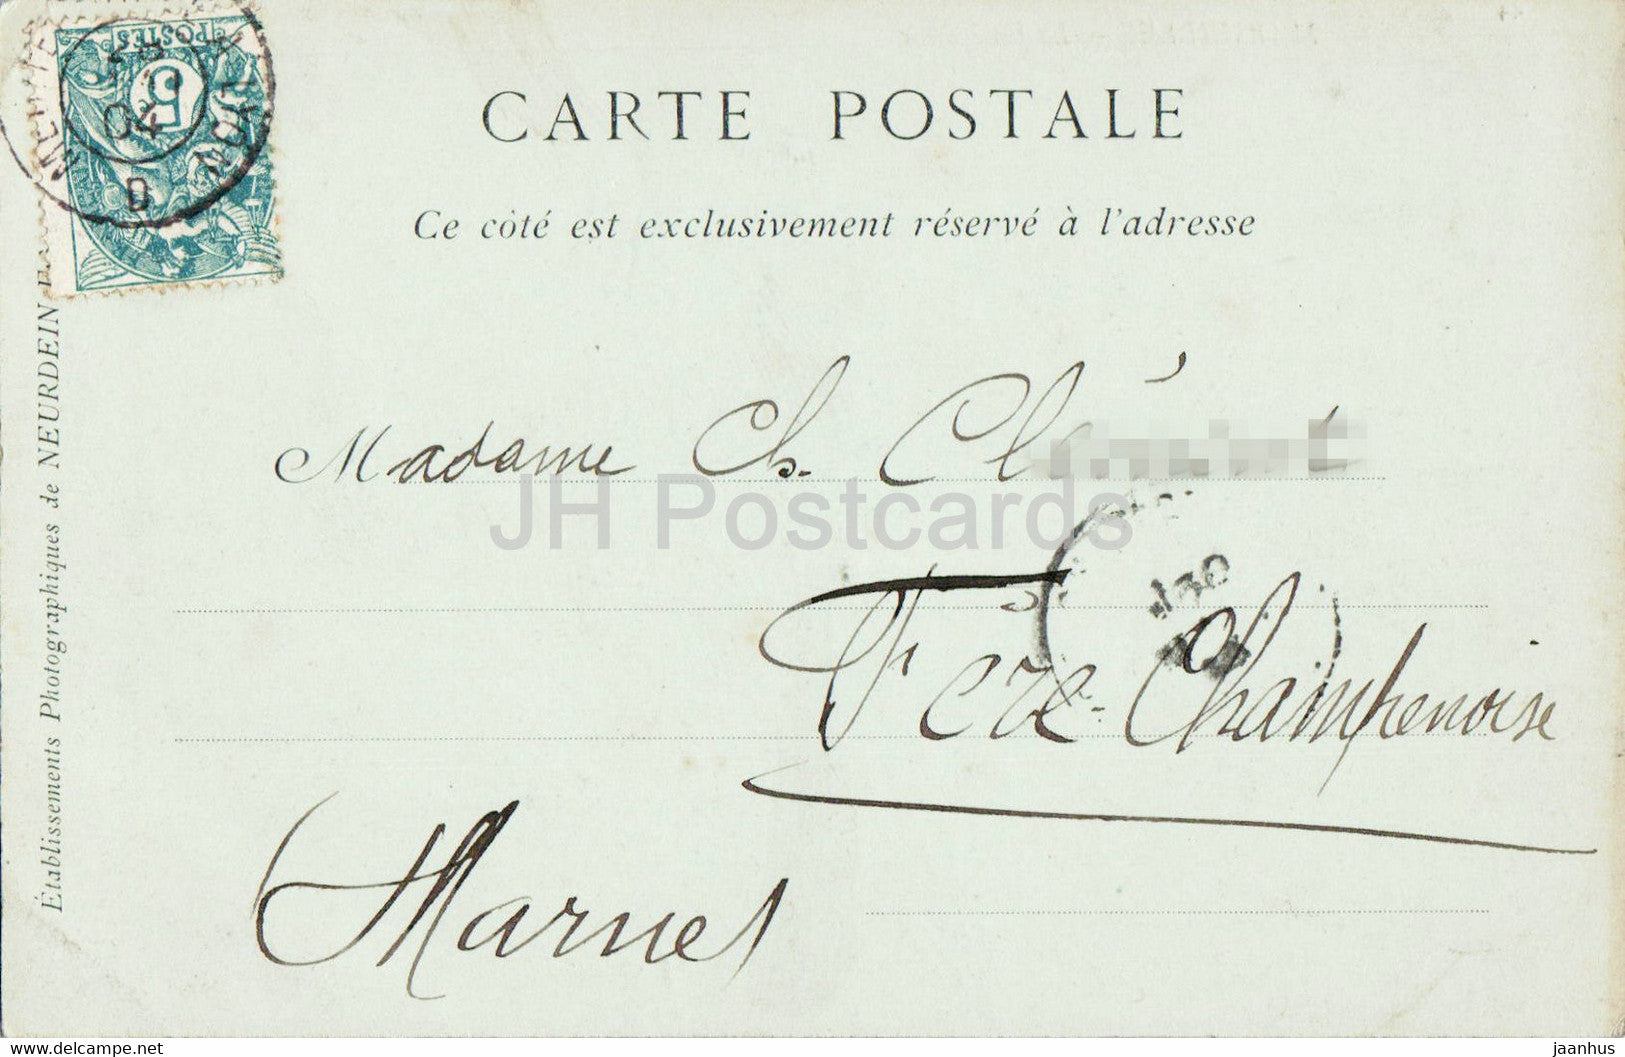 POSTES
5
04
D
LYON
CARTE POSTALE
Ce côté est exclusivement réservé à l'adresse
Établissements Photographiques de NEURDEIN
Madame Ch. Clé
JH Postcards
Fère-Champenoise
Marne
delcampe.net
jaanhus